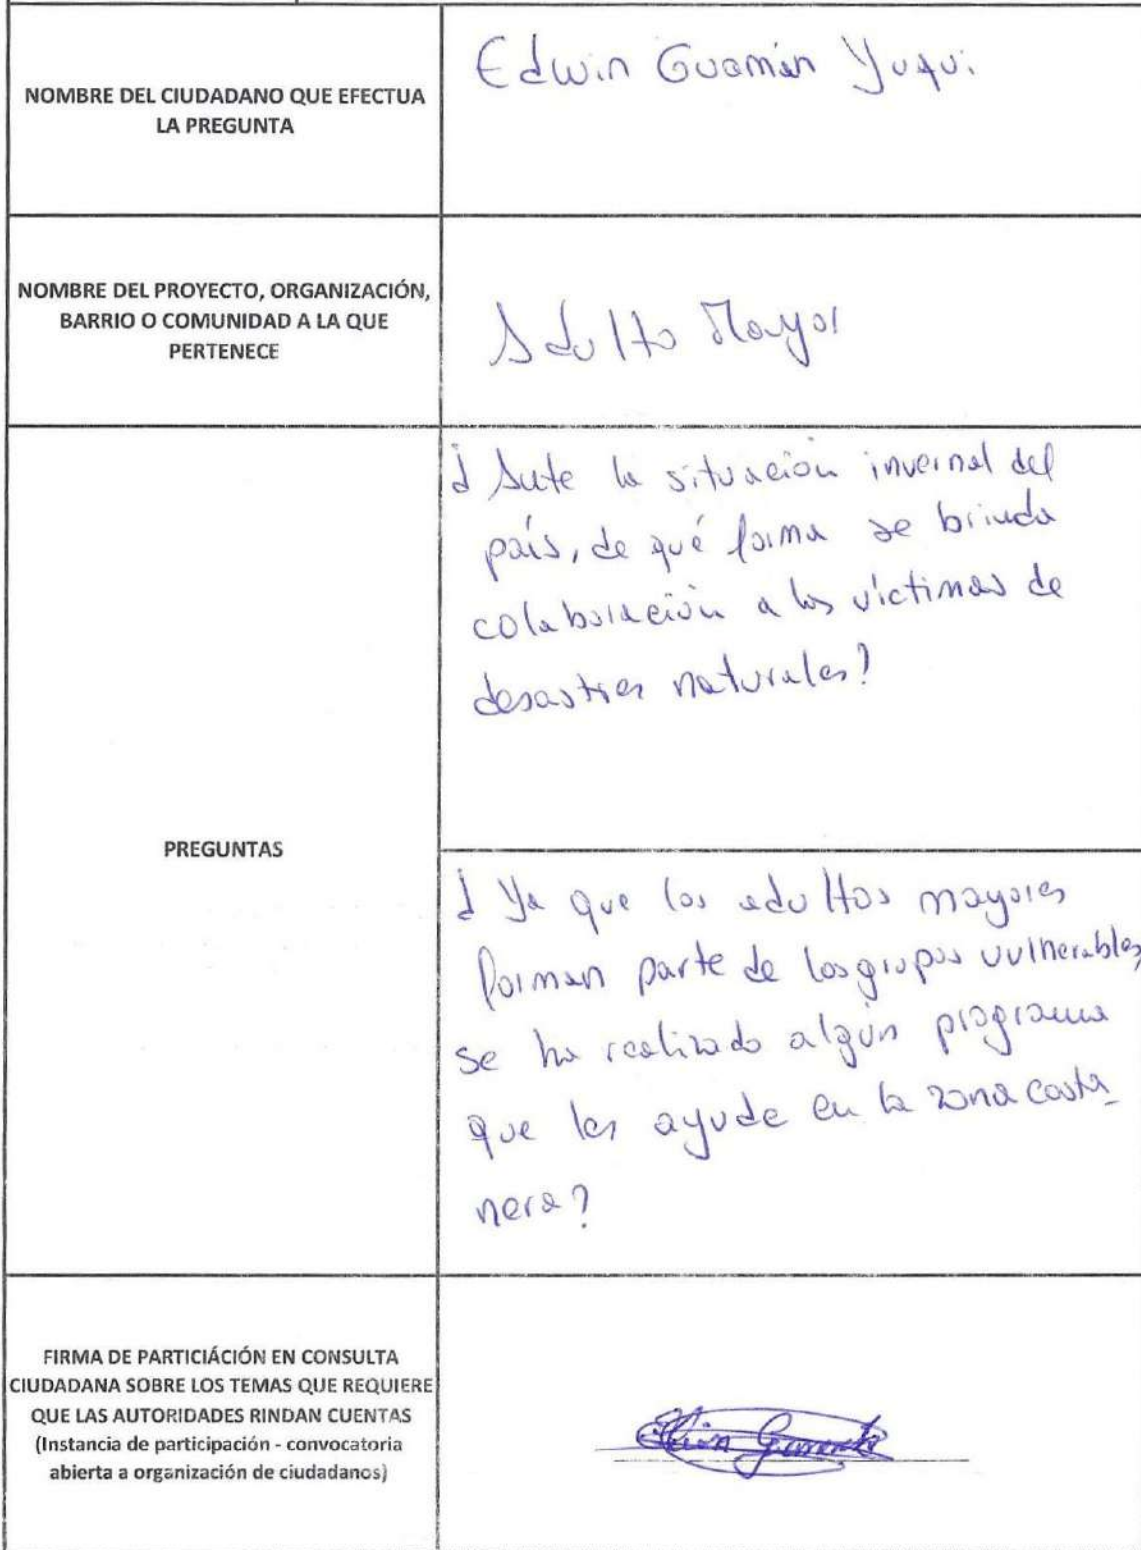 NOMBRE DEL CIUDADANO QUE EFECTUA
LA PREGUNTA
Edwin Guamán Yuqui
NOMBRE DEL PROYECTO, ORGANIZACIÓN,
BARRIO O COMUNIDAD A LA QUE
PERTENECE
Adulto Mayor
PREGUNTAS
¿Ante la situación invernal del
país, de qué forma se brinda
colaboración a las víctimas de
desastres naturales?
¿Ya que los adultos mayores
forman parte de los grupos vulnerables,
se ha realizado algún programa
que les ayude en la zona costa-
nera?
FIRMA DE PARTICIÁCIÓN EN CONSULTA
CIUDADANA SOBRE LOS TEMAS QUE REQUIERE
QUE LAS AUTORIDADES RINDAN CUENTAS
(Instancia de participación - convocatoria
abierta a organización de ciudadanos)